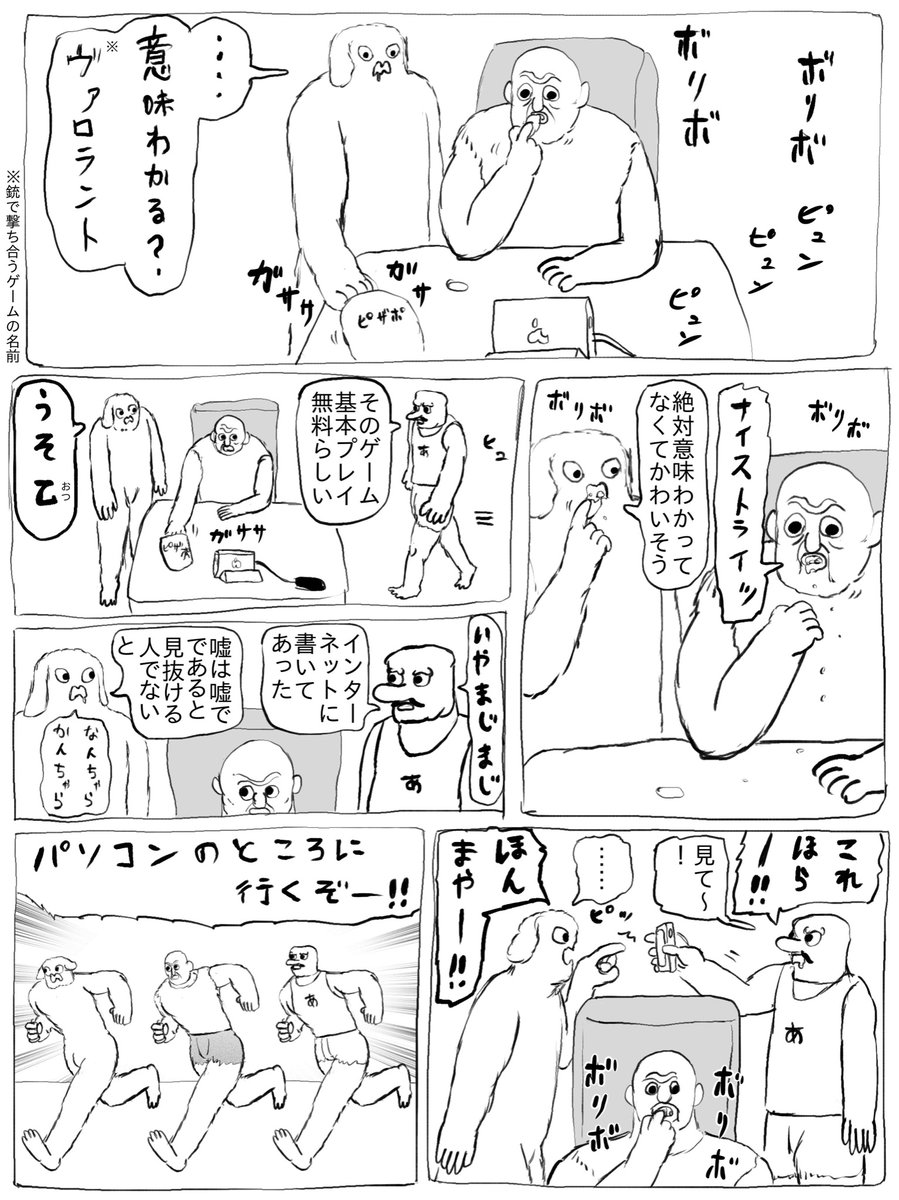 ボリボ
ボリボ
ピュン
ピュン
ピュン
‥‥
意味わかる?
※
ヴァロラント
※銃で撃ち合うゲームの名前
ガササ
ガサ
ピザポ
ボリボ
ナイストライッ
絶対意味わかって
なくてかわいそう
ボリボ
ヒュ
あ
そのゲーム
基本プレイ
無料らしい
ガササ
ピザポ
うそ乙
おつ
いやまじまじ
インター
ネットに
書いて
あった
あ
嘘は嘘で
であると
見抜ける
人でない
と
なんちゃら
かんちゃら
これ
ほら
ー!!
見て〜
!
‥‥‥
ピッ
ほん
まやー!!
あ
ボリボ
ボリボ
パソコンのところに
行くぞー!!
あ